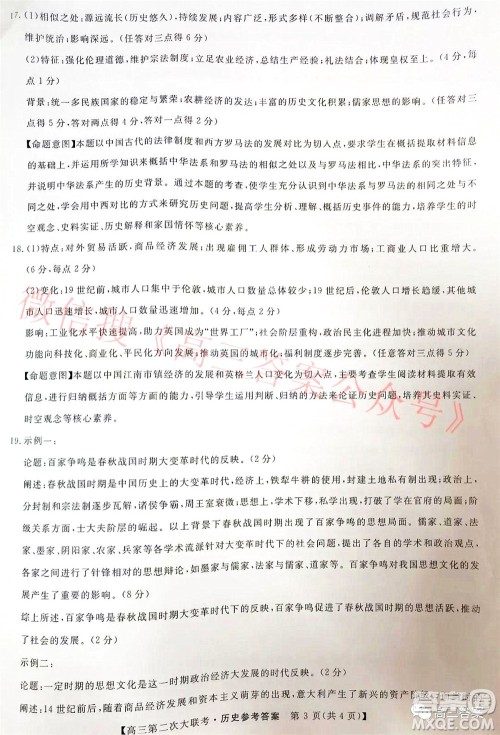 17.(1)相似之处:源远流长(历史悠久),形式多样(不断丰富和发展);调解矛盾,规范社会行为,
维护统治;影响深远。(任答对三点得6分)
(2)特征:强化伦理道德,维护宗法制度;农业立法发达,总结生产经验;礼法结合;体现皇权至上。(任答对三点得6分)
背景:统一多民族国家的形成与巩固;农耕经济的发展;丰富的立法经验;儒家思想的影响。(任答对三
点得6分,两点得5分)
【命题意图】本题以中国古代的法律制度和西方罗马法的发展对比为切入点,要求学生在提取材料信息
的基础上,并运用所学的历史知识来概括中华法系和西方罗马法的相同之处以及中华法系的突出特征,并
说明中华法系产生的历史背景。本题通过学生概括中华法系与罗马法的相同之处与不同之处,培养
学生学会用中西对比的方式来认识中华法系的独特性和价值,提升学生思维能力,培养学生的时
空观念、史料实证、历史解释和家国情怀等核心素养。
18.(1)特点:对外贸易活跃,商品经济发展;出现雇佣工人群体、形成劳动力市场;工商业人口比重增大。
(6分,每点2分)
(2)变化:19世纪前,城市人口集中于伦敦,城市人口数量总体较少;19世纪后,伦敦人口增长趋缓,其
他城市人口增长迅速,城市人口数量迅速增加。(4分,每点2分)
影响:工业化水平快速提高,助力英国成为“世界工厂”;社会文明程度提高;经济快速发展;推动城市文明
功能向科技化、商业化、平民化方向发展;推动了英国民主政治的发展。(任答对三点得6分)
【命题意图】本题以中国江南市镇经济的发展和英格兰人口变化为切入点,主要考查学生阅读材料、提取
信息以及概括分析的能力。通过本题的学习,有助于培养学生唯物史观、历史解释、史料实证、
时空观念等核心素养。
19.示例一:
论题:百家争鸣是春秋战国时期大变革时代的反映。(2分)
阐述:春秋战国时期是中国古代社会的大变革时期。经济上,铁犁牛耕的使用,封建土地私有制形成;政治上,
分封制、宗法制逐步瓦解,诸侯争霸,周王室衰微;思想文化上,学在官府的局面被打破,私学
兴起;阶级关系上,士大夫阶层的崛起。这些现实为百家争鸣的出现提供了条件。在这种背景下,出现了
墨家、儒家、阴阳家、农家、兵家、名家、杂家、道家等众多流派,它们围绕着当时的社会政治、经济等问
题,相互之间进行了针锋相对的思想辩论,形成了百家争鸣的局面,推动了思想和社会的进步。(8分)
综上所述,百家争鸣是春秋战国大变革时代下的反映,百家争鸣促进了春秋战国时期的思想交流,推动
了社会的发展。(2分)
示例二:
论题:文艺复兴适应了时代政治经济大发展的需要。(2分)
阐述:14世纪随着商品经济的发展,意大利产生了新兴的资产阶
高三第二次大联考·历史参考答案 第3页(共4页)
微信搜《高三答案公众号》